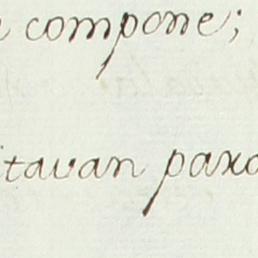 compone;
itavan para